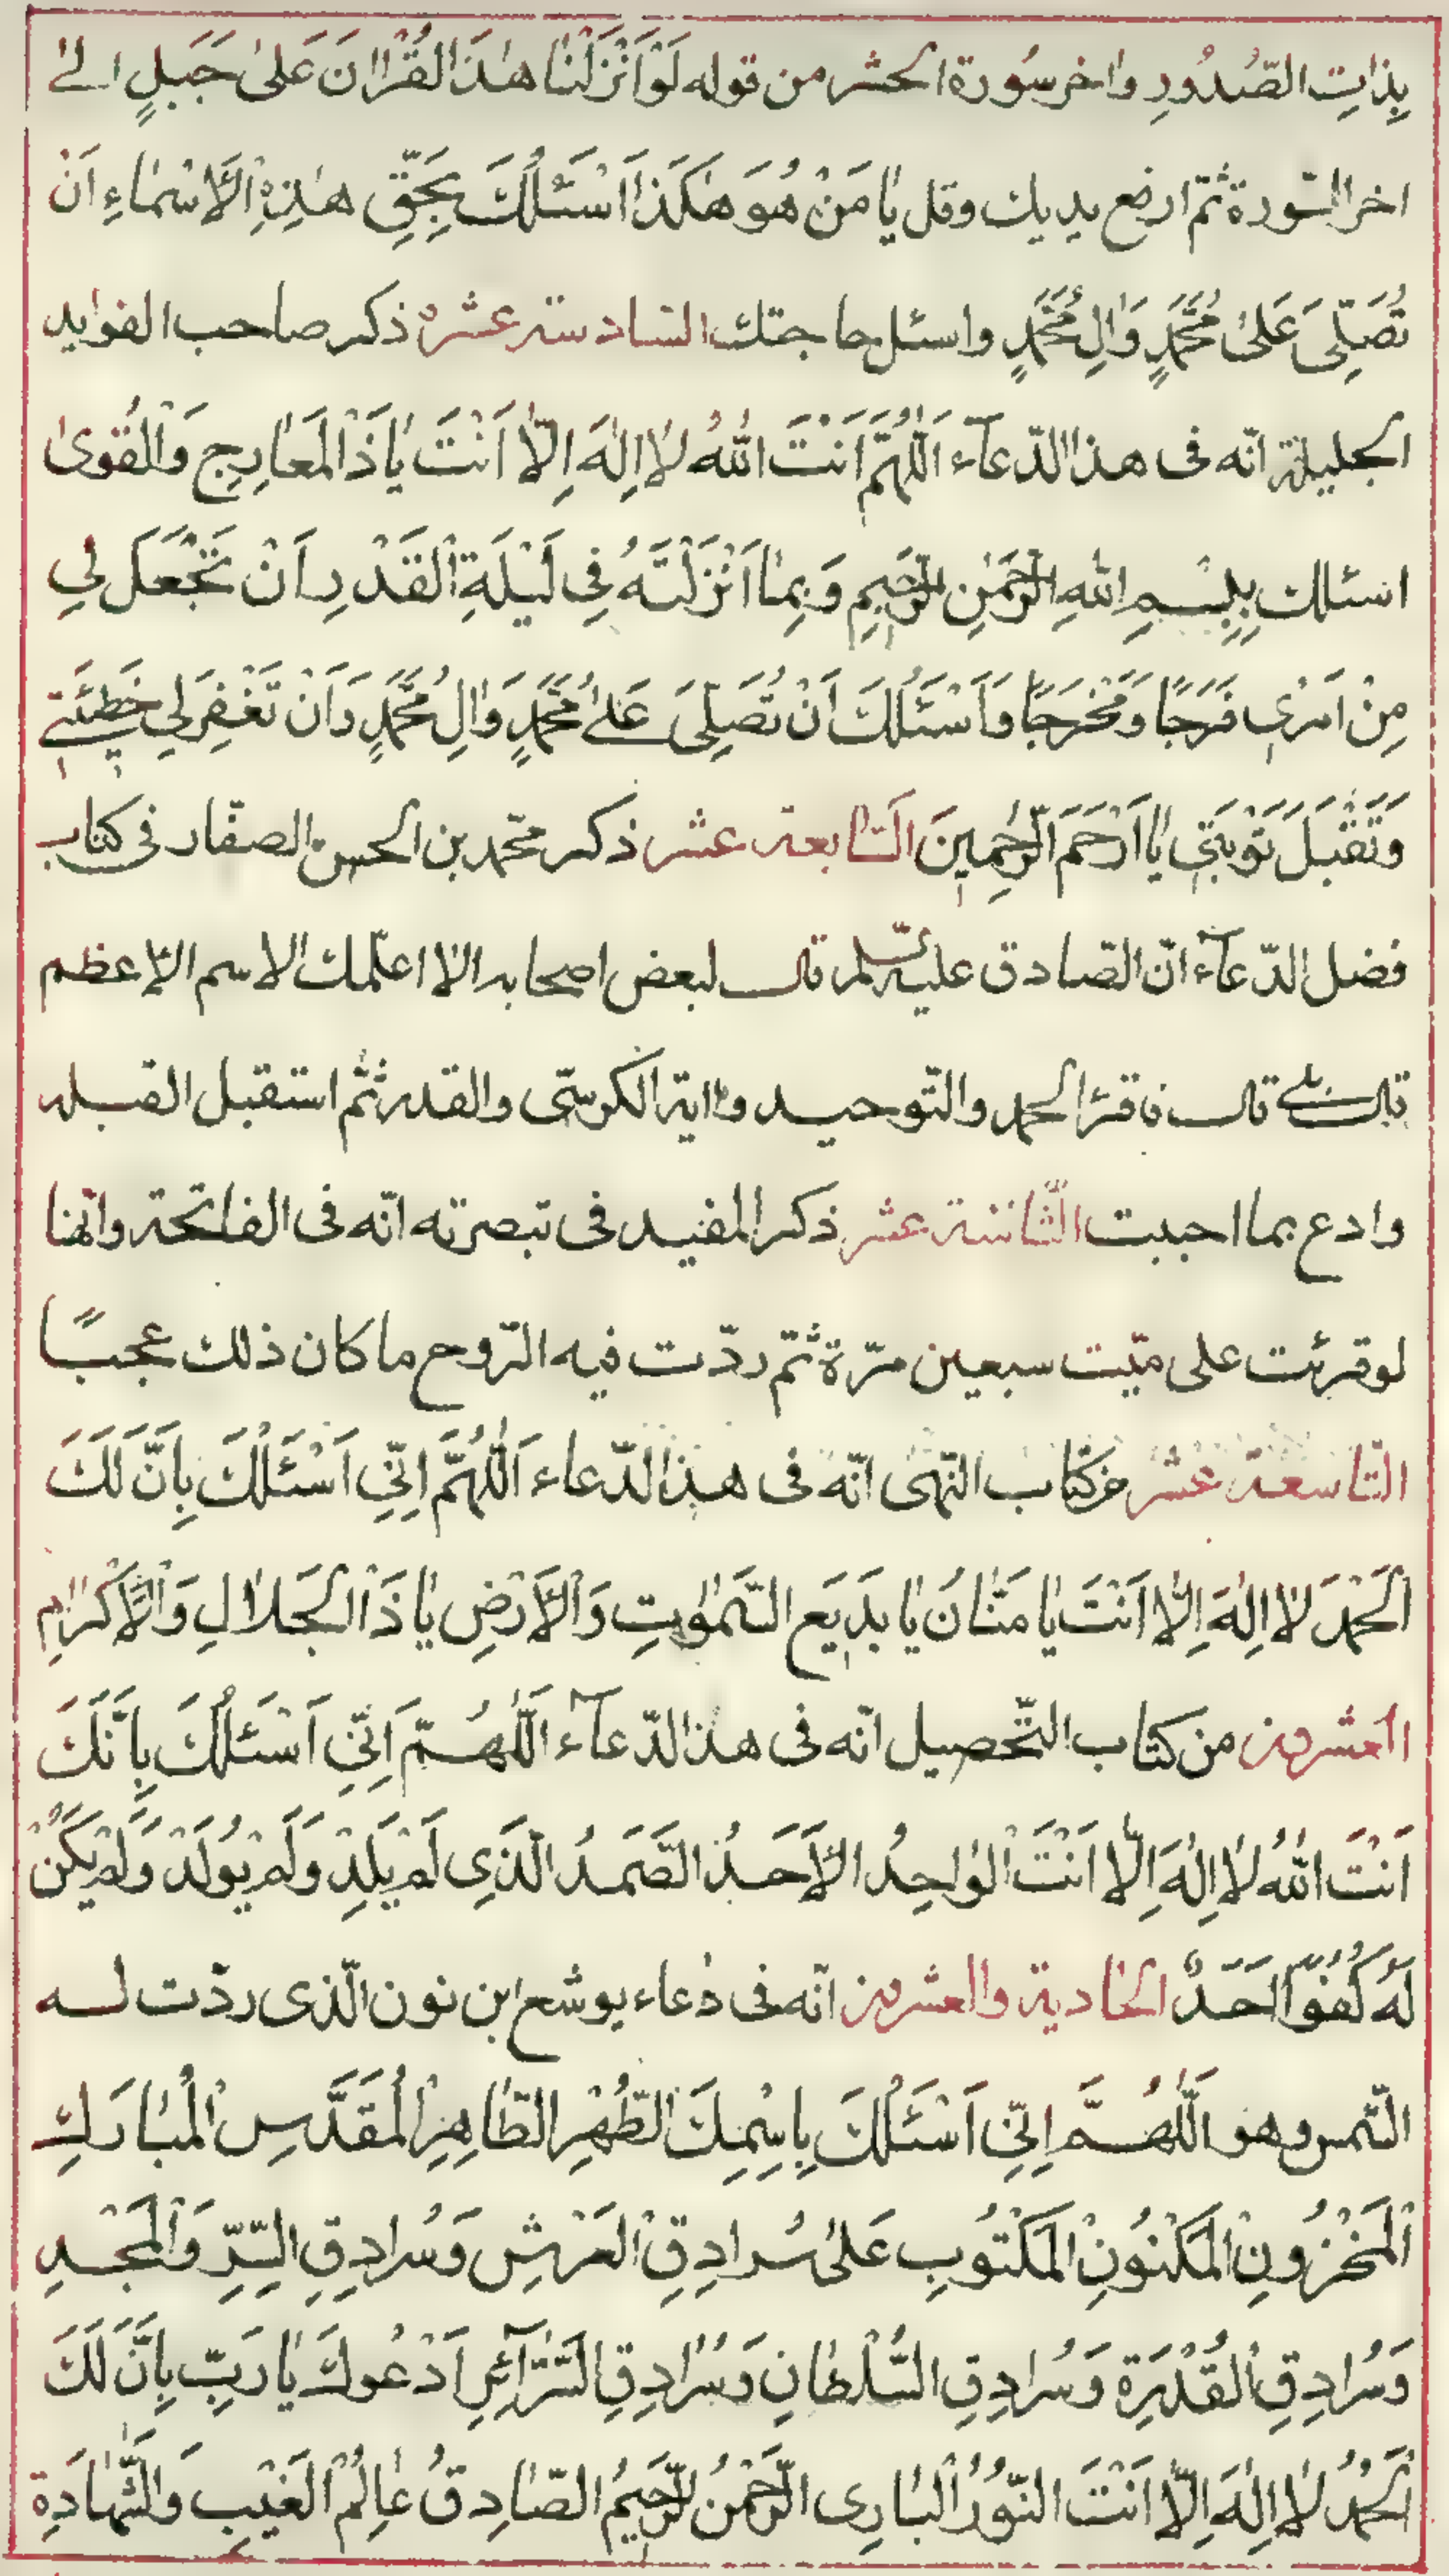 بِذٰاتِ الصُّدُورِ واٰخر سُورة الحشر من قوله لَوْ اَنْزَلْنٰا هٰذَا الْقُرْاٰنَ عَلىٰ جَبَلٍ الىٰ
اخر السّورة ثمّ ارفع يديك وقل يٰا مَنْ هُوَ هٰكَذٰا اَسْئَلُكَ بِحَقِّ هٰذِهِ الْاَسْمٰاءِ اَنْ
تُصَلِّىَ عَلىٰ مُحَمَّدٍ وَاٰلِ مُحَمَّدٍ واسئل حاجتك السّادسة عشره ذكر صاحب الفوايد
الجليلة انّه فى هذا الدّعآء اَللّٰهُمَّ اَنْتَ اللّٰهُ لٰا اِلٰهَ اِلّٰا اَنْتَ يٰا ذَا الْمَعٰارِجِ وَالْقُوىٰ
اسئلك بِبِسْمِ اللّٰهِ الرَّحْمٰنِ الرَّحيٖمِ وَبِمٰا اَنْزَلْتَهُ فِى لَيْلَةِ الْقَدْرِ اَنْ تَجْعَلَ لِي
مِنْ اَمْرى فَرَجًا وَمَخْرَجًا وَاَسْئَلُكَ اَنْ تُصَلِّىَ عَلىٰ مُحَمَّدٍ وَاٰلِ مُحَمَّدٍ وَاَنْ تَغْفِرَ لِي خَطٖيئَتٖي
وَتَقْبَلَ تَوْبَتٖى يٰا اَرْحَمَ الرّٰحِمٖينَ السّابعة عشر ذكر محمّد بن الحسن الصفّار فى كتاب
فضل الدّعآء انّ الصّادق عليه السّلم قال لبعض اصحابه الا اعلّمك الاسم الاعظم
قال بلى قال فاقرَا الحمد والتّوحيد واٰية الكرسّى والقدر ثمّ استقبل القبله
وادع بما احببت الثّامنة عشر ذكر المفيد فى تبصرته انّه فى الفاتحة وانّها
لو قرئت على ميّت سبعين مرّة ثمّ ردّت فيه الرّوح ما كان ذلك عجبًا
التّاسعة عشر من كتاب النّهى انّه فى هذا الدّعاء اَللّٰهُمَّ اِنّٖي اَسْئَلُكَ بِاَنَّ لَكَ
الْحَمْدَ لٰا اِلٰهَ اِلّٰا اَنْتَ يٰا مَنّٰانَ يٰا بَدٖيَع السَّمٰوٰتِ وَالْاَرْضِ يٰا ذَا الْجَلٰالِ وَالْاِكْرٰامِ
العشرون من كتاب التّحصيل انّه فى هذا الدّعآء اَللّٰهُمَّ اِنّٖي اَسْئَلُكَ بِاَنَّكَ
اَنْتَ اللّٰهُ لٰا اِلٰهَ اِلّٰا اَنْتَ الْوٰاحِدُ الْاَحَدُ الصَّمَدُ الَّذِي لَمْ يَلِدْ وَلَمْ يُولَدْ وَلَمْ يَكُنْ
لَهُ كُفُوًا اَحَدٌ الحادية والعشرون انّه فى دعاء يوشع ابن نون الّذى ردّت له
الشّمس وهو اَللّٰهُمَّ اِنّٖي اَسْئَلُكَ بِاسْمِكَ الطُّهْرِ الطّٰاهِرِ الْمُقَدَّسِ الْمُبٰارَكِ
الْمَخْزُونِ الْمَكْنُونِ الْمَكْتُوبِ عَلىٰ سُرٰادِقِ الْعَرْشِ وَسُرٰادِقِ السِّرِّ وَالْمَجْدِ
وَسُرٰادِقِ الْقُدْرَةِ وَسُرٰادِقِ السُّلْطٰانِ وَسُرٰادِقِ السَّرٰآئِرِ اَدْعُوكَ يٰا رَبِّ بِاَنَّ لَكَ
الْحَمْدُ لٰا اِلٰهَ اِلّٰا اَنْتَ النُّورُ الْبٰارِى الرَّحْمٰنُ الرَّحيٖمُ الصّٰادِقُ عٰالِمُ الْغَيْبِ وَالشَّهٰادَةِ